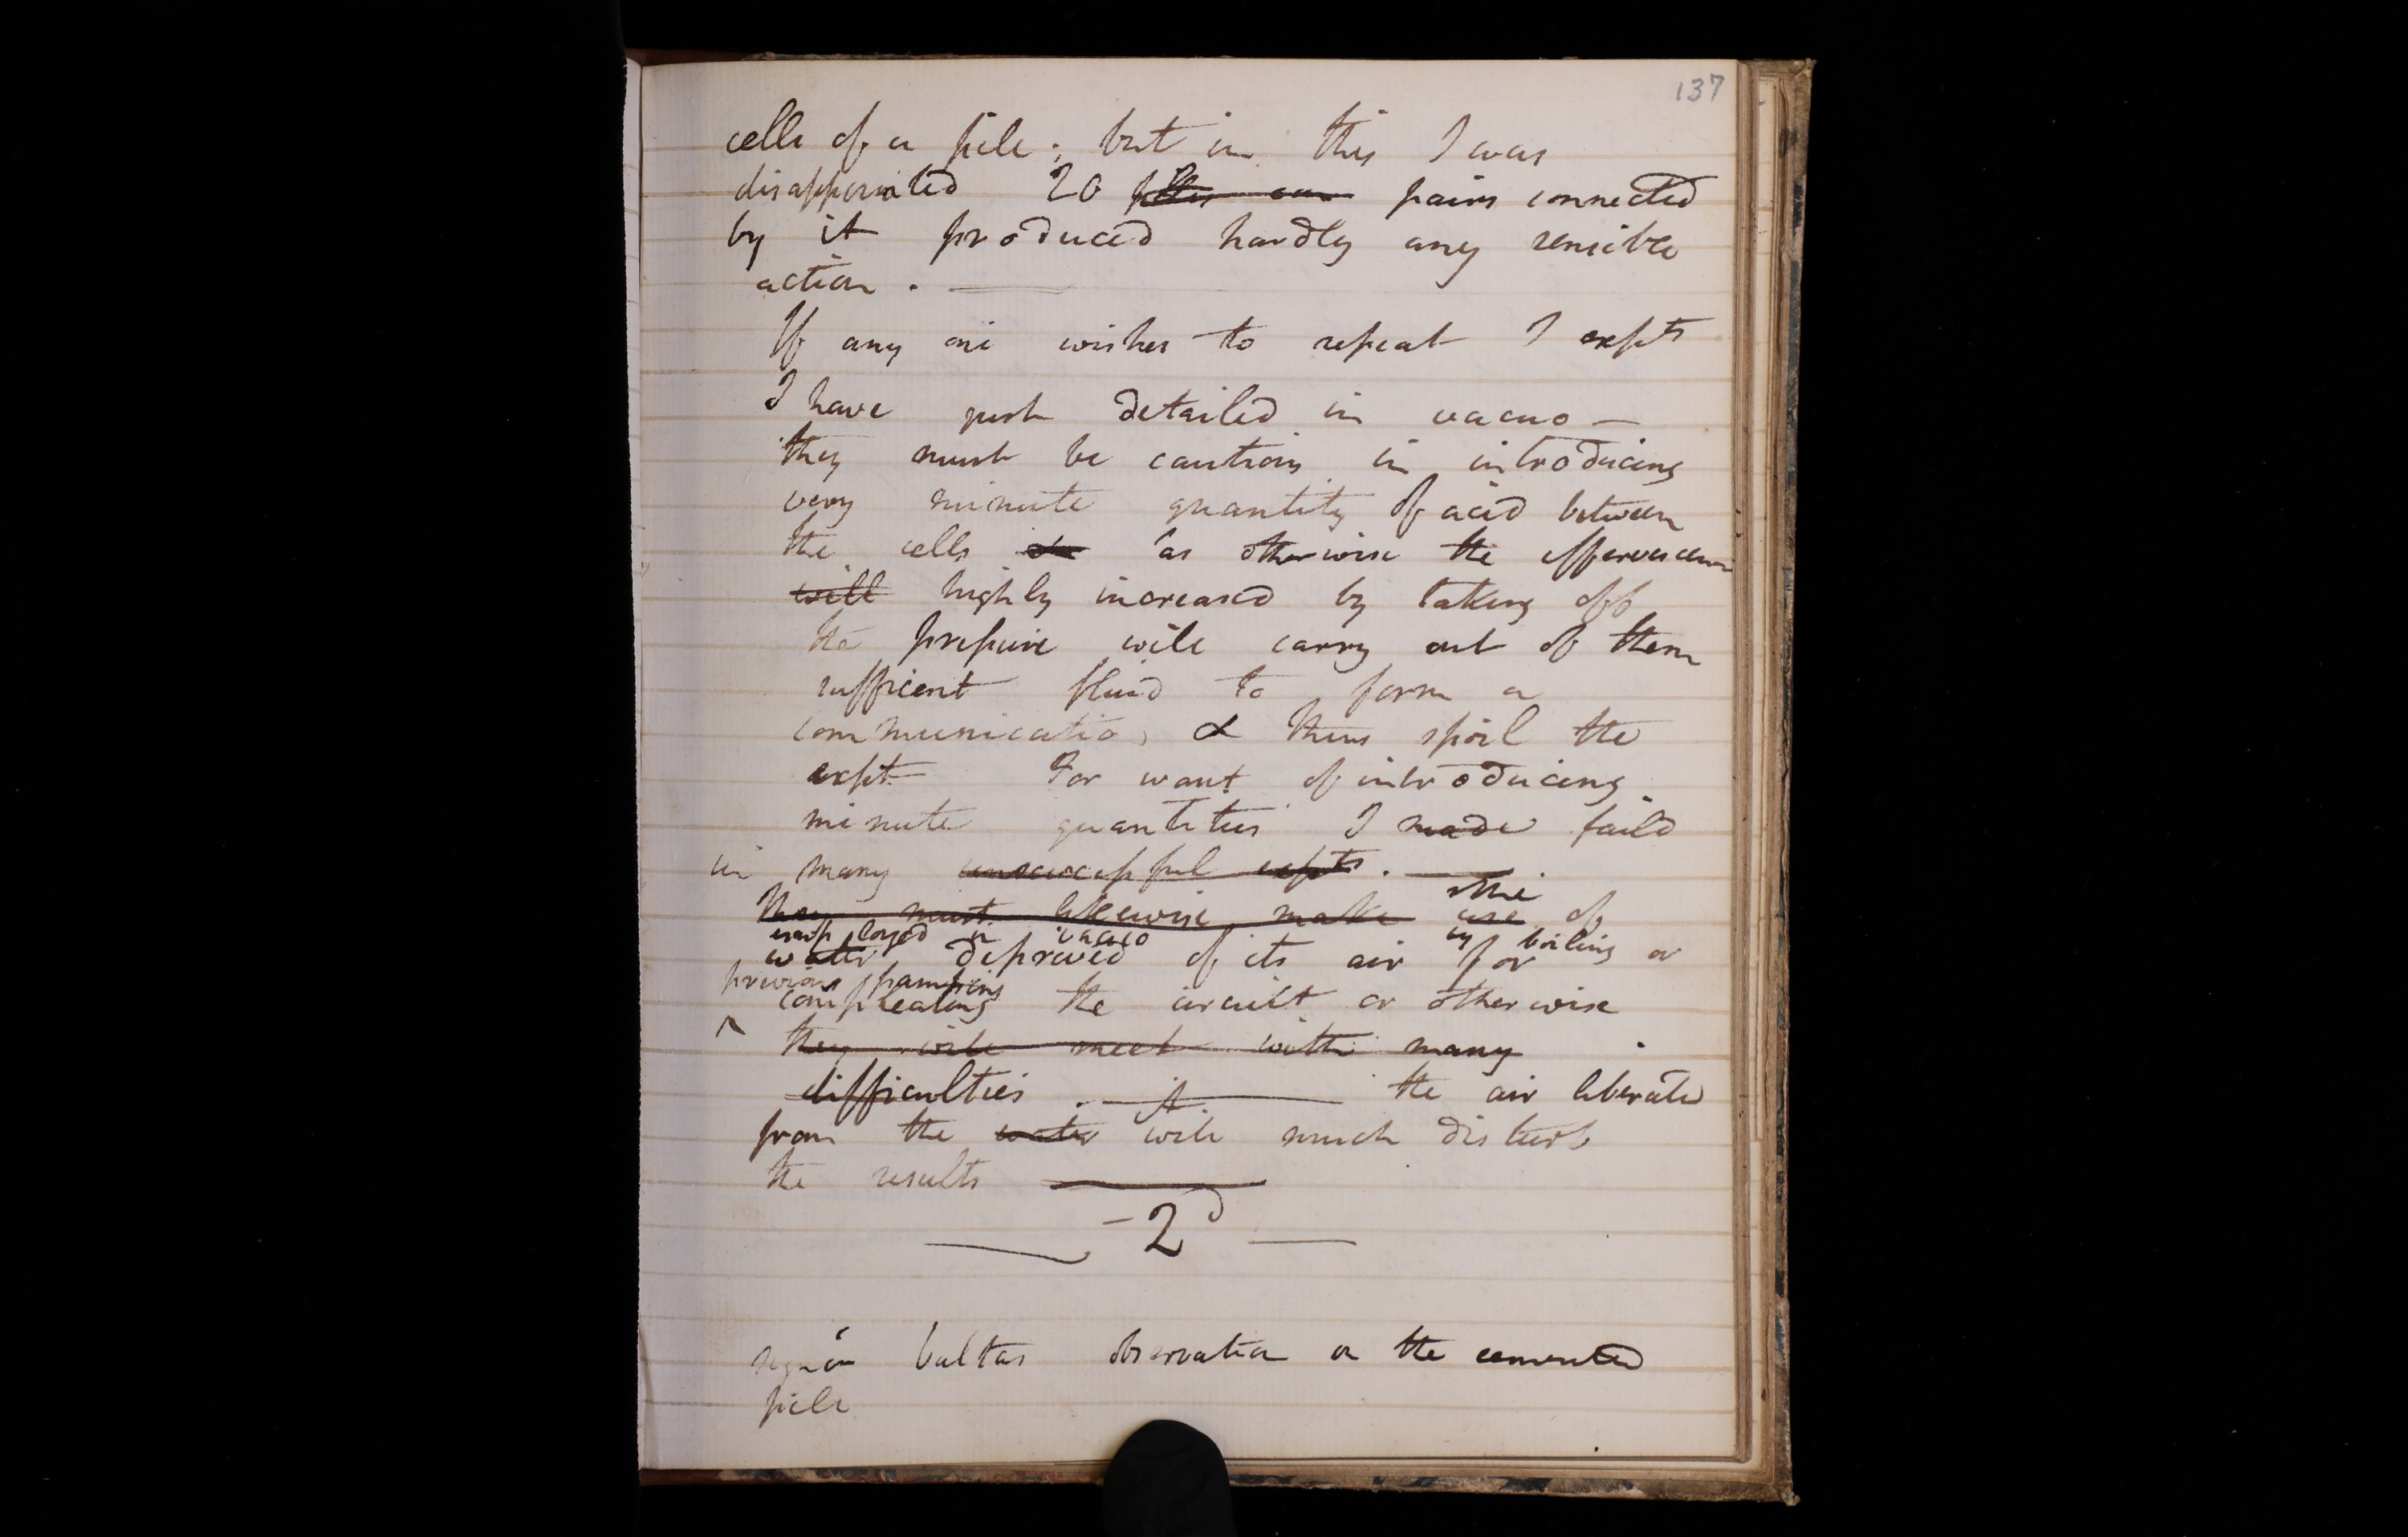 137
cells of a pile; but in this I was
disappointed 20 pairs connected
by it produced hardly any sensible
action. —
If any one wishes to repeat I expts
I have just detailed in vacuo —
they must be cautious in introducing
very minute quantity of acid between
the cells as otherwise the effervescence
will highly increased by taking off
the pressure will carry out of them
sufficient fluid to form a
communication & thus spoil the
expt For want of introducing
minute quantities I made faild
in many unsuccessful expts. —
the
They must likewise make use of
employed in vacuo by boiling or
water deprived of its air for
previous pumping
compleating the circuit or otherwise
^ they will meet with many
difficulties. — the air liberated
it
from the water will much disturb
the results —
— 2d —
Voltas observation on the cemented
pile